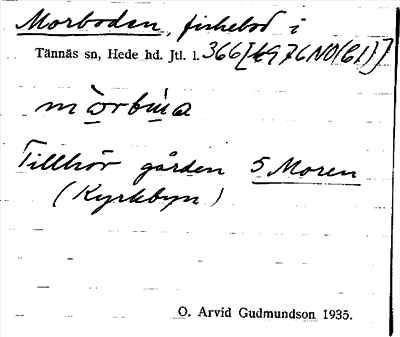 Morboden, fiskebod i
Tännäs sn, Hede hd. Jtl. l. 366 [
mòrbùa
Tillhör gården 5 Moren
(Kyrkbyn)
O. Arvid Gudmundson 1935.